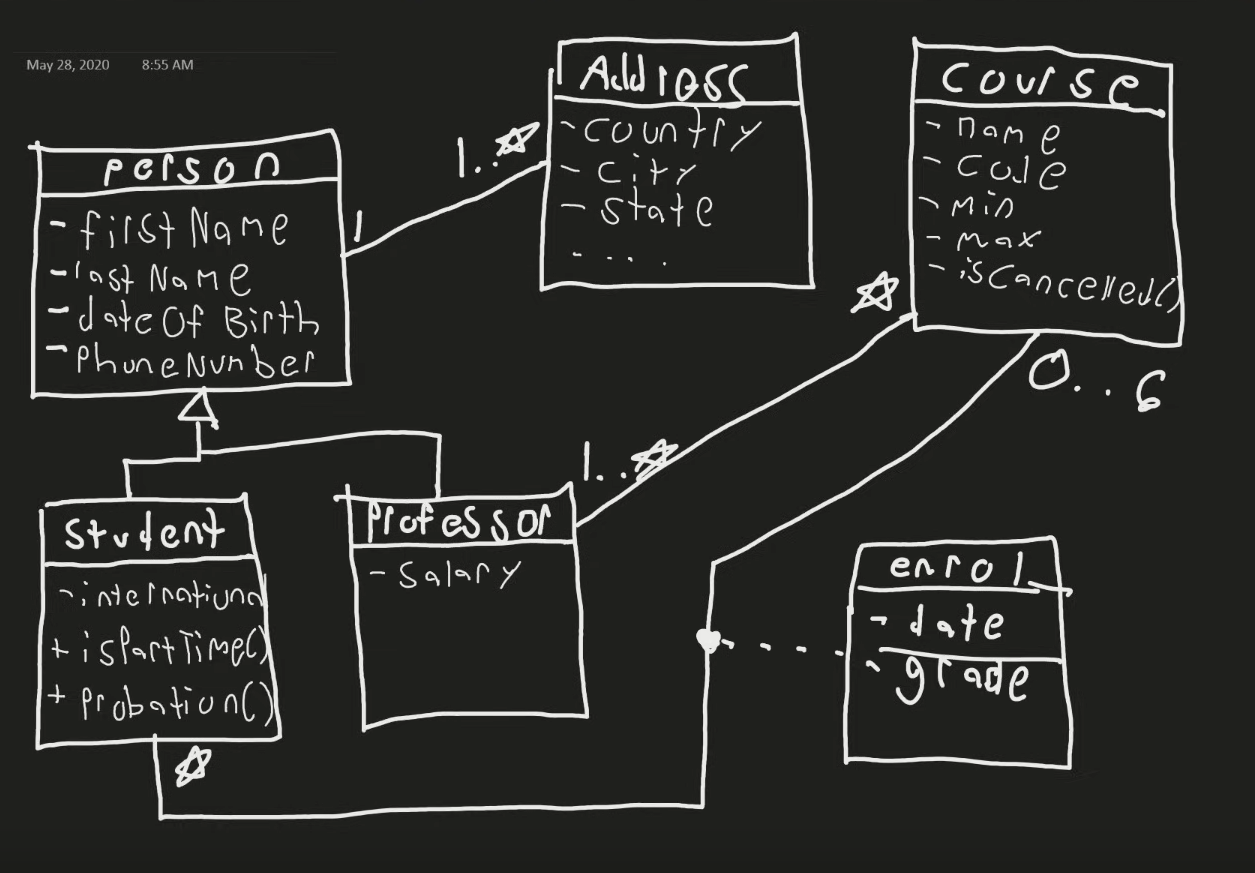 May 28, 2020 8:55 AM
Person
- firstName
- lastName
- dateOfBirth
- phoneNumber
1
1..*
Address
- country
- city
- state
- ....
Course
- name
- code
- min
- max
- isCancelled()
*
0..6
1..*
Student
- internationa
+ isPartTime()
+ probation()
*
Professor
- salary
enrol
- date
- grade